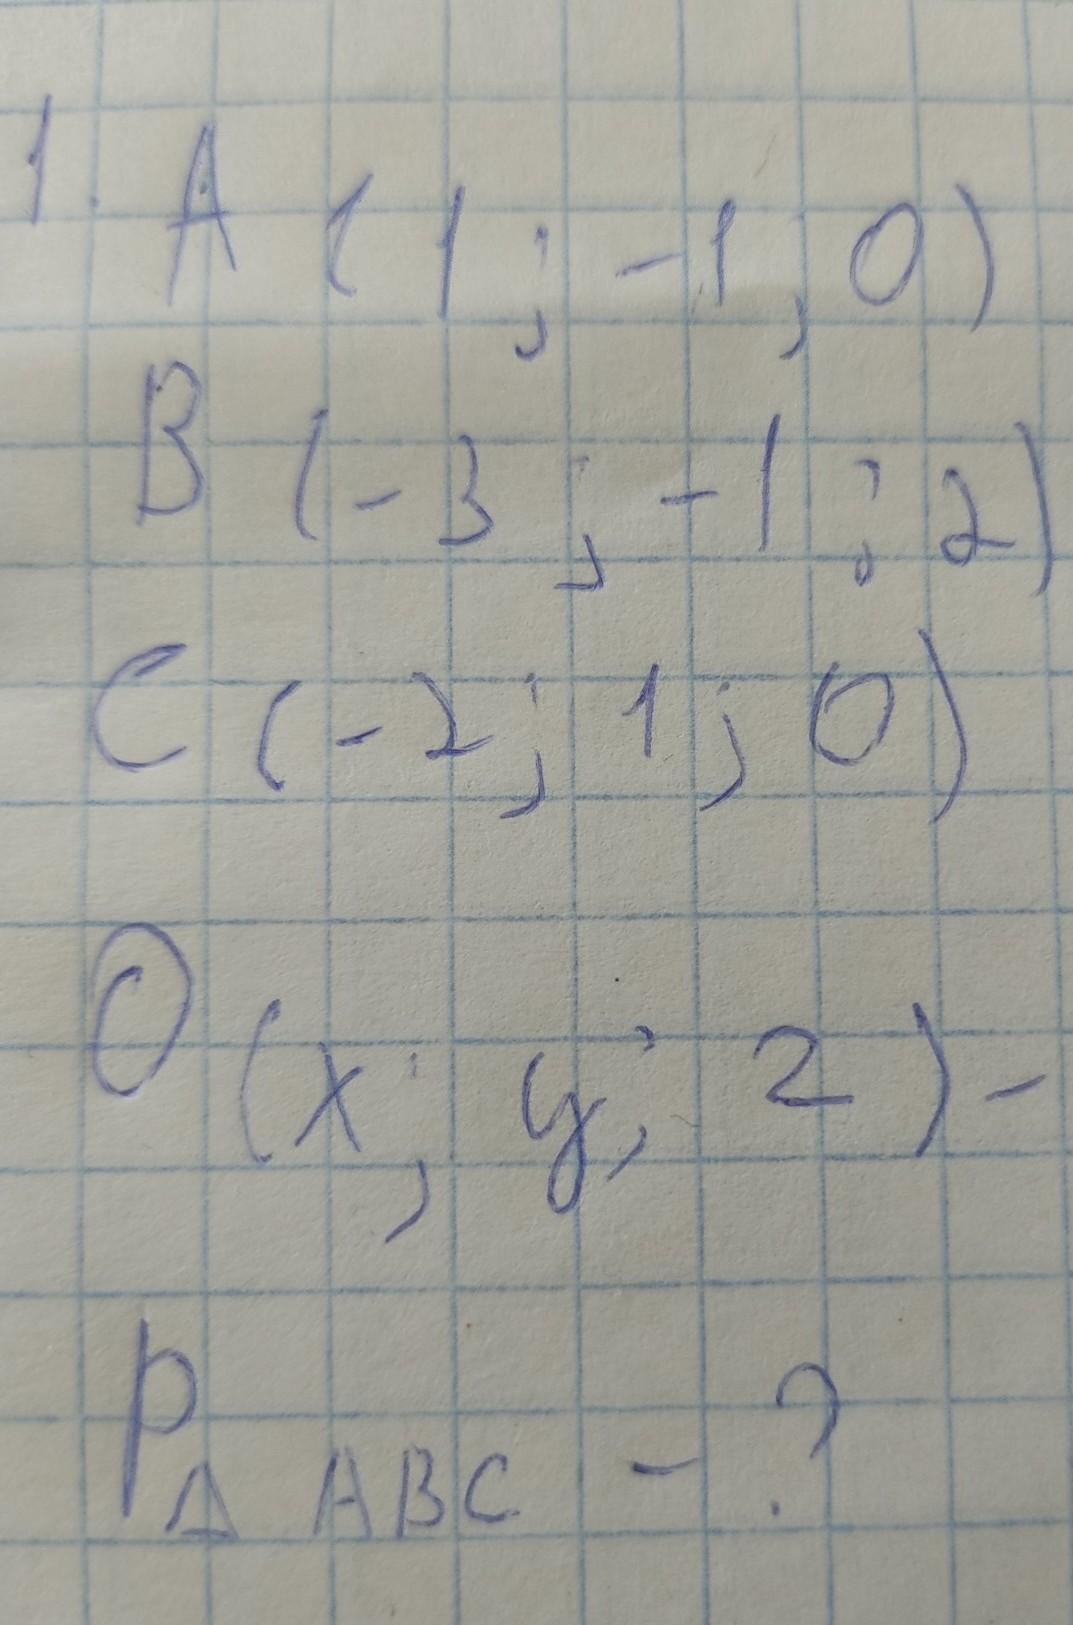 1. A (1; -1; 0)
B (-3; -1; 2)
C (-2; 1; 0)
O (x; y; 2) -
P△ ABC - ?